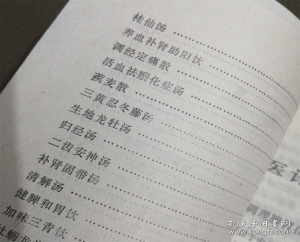 桂仙汤
养血补肾助阳饮
调经定痛散
活血祛瘀化症汤
蒺麦散
三黄忍冬藤汤
生地龙牡汤
归经汤
二齿安神汤
补肾固带汤
清解汤
健脾和胃饮
加味三青饮
医话
孔夫子旧书网